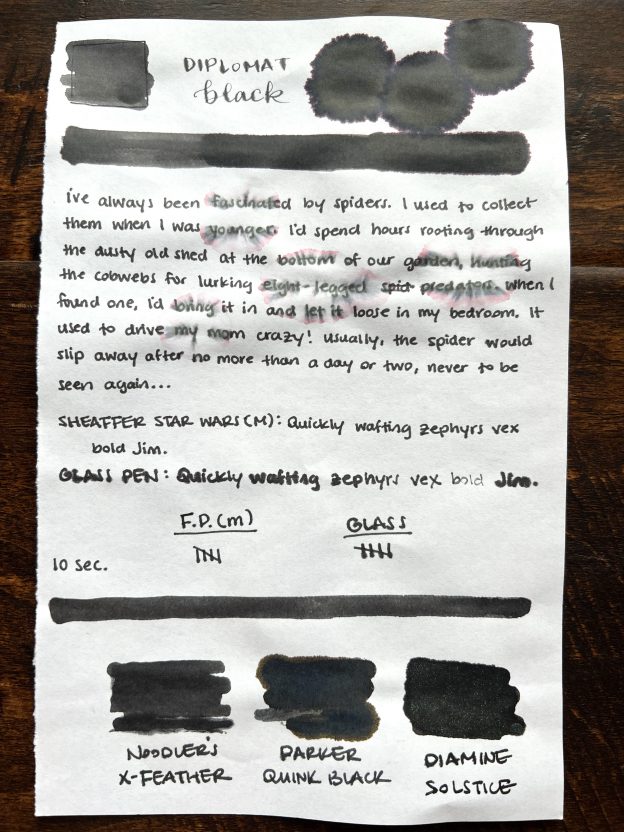 DIPLOMAT
black
i've always been fascinated by spiders. I used to collect
them when I was younger. I'd spend hours rooting through
the dusty old shed at the bottom of our garden, hunting
the cobwebs for lurking eight-legged spid predators. When I
found one, I'd bring it in and let it loose in my bedroom. It
used to drive my mom crazy! Usually, the spider would
slip away after no more than a day or two, never to be
seen again...
SHEAFFER STAR WARS (M): Quickly wafting zephyrs vex
bold Jim.
GLASS PEN: Quickly wafting zephyrs vex bold Jim.
F.P. (m) GLASS
10 sec.
NOODLER'S X-FEATHER
PARKER QUINK BLACK
DIAMINE SOLSTICE